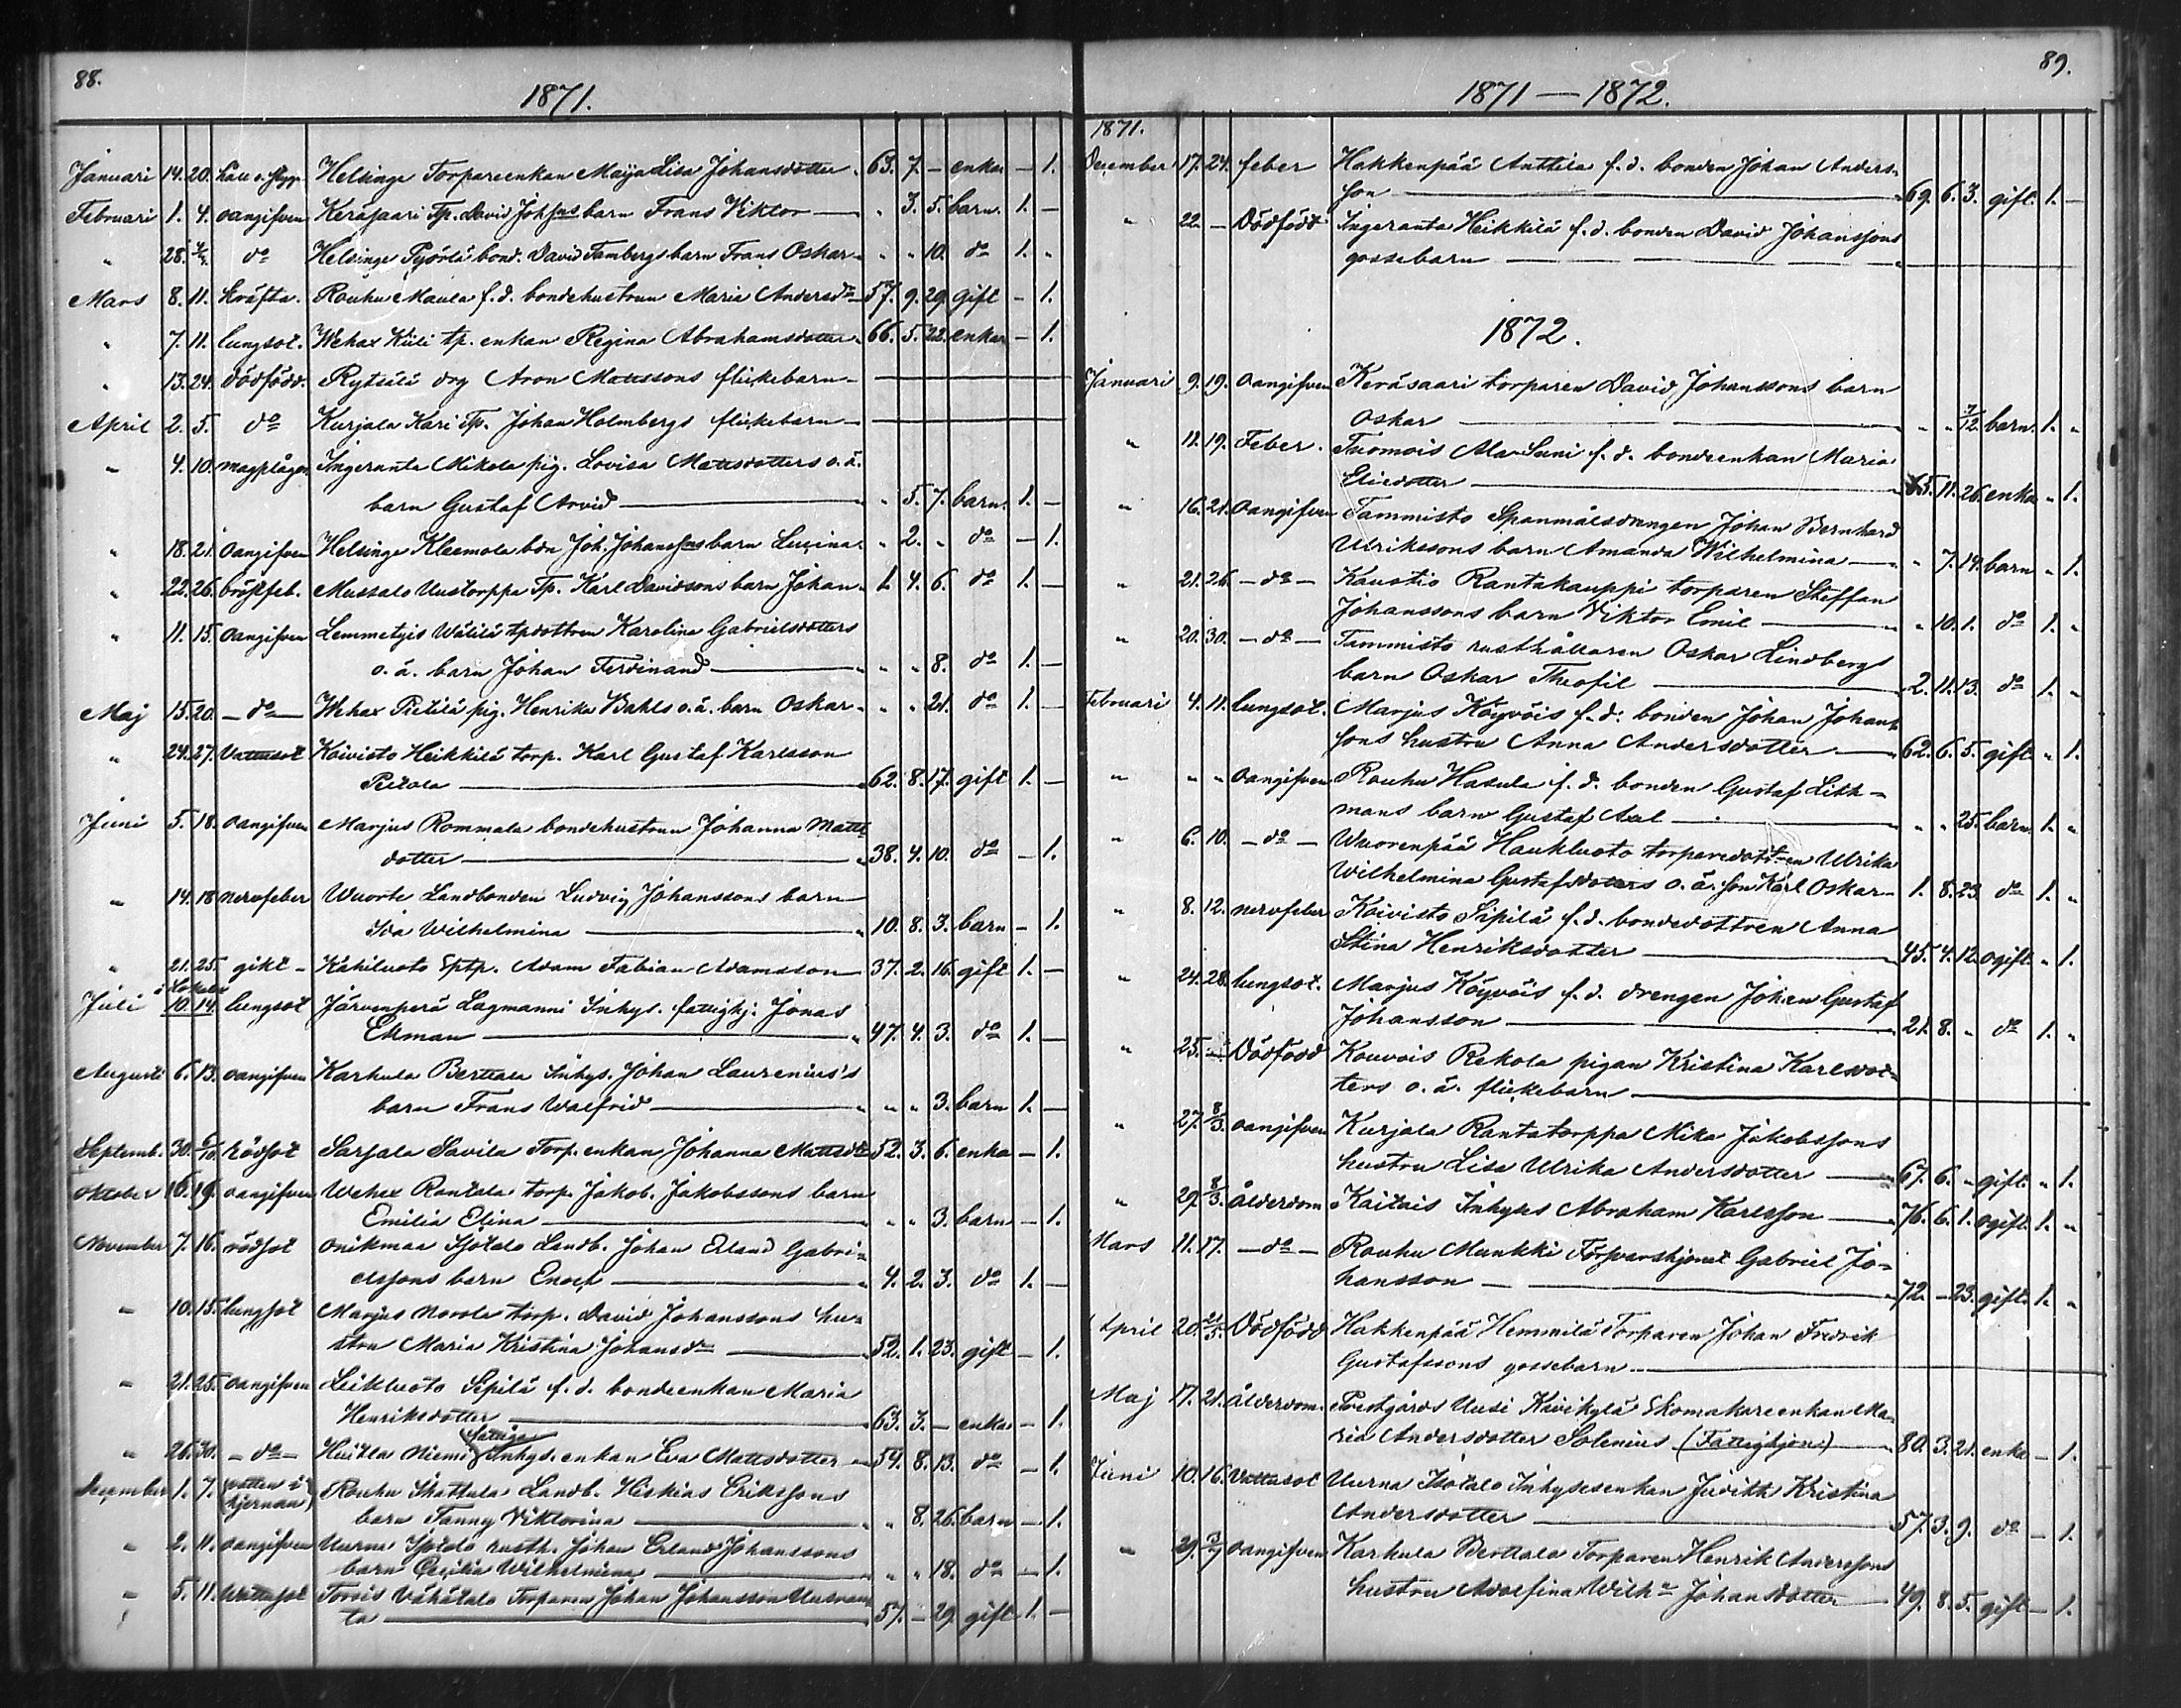 88.
1871.
Januari 14. 20. håll o. stygn Helsinge Torpareenkan Maija Lisa Johansdotter 63. 7. — enka — 1.
Februari 1. 4. oangifven Keräsaari Tp. David Johsns barn Frans Viktor — " 3. 5. barn. 1. —
" 28. 4/3. do Helsinge Pyörlä bond. David Tambergs barn Frans Oskar " " 10. do 1. "
Mars 8. 11. kräfta. Rouhu Maula f.d. bondehustrun Maria Andersdr 57. 9. 29. gift — 1.
" 7. 11. lungsot. Wehax Küli tp. enkan Regina Abrahamsdotter 66. 5. 22. enka — 1.
" 13. 24. dödfödd. Rytsälä drg Aron Matssons flickebarn —
April 2. 5. do Kurjala Kari Tp. Johan Holmbergs flickebarn —
" 4. 10. magplågor Ingeranta Mikola pig. Lovisa Mattsdotters o.ä.
barn Gustaf Arvid — " 5. 7. barn. 1. —
" 18. 21. oangifven Helsinge Kleemola bdn Joh. Johanssns barn Lucina " 2. " do — 1.
" 22. 26. bröstfeb. Mussalo Uustorppa Tp. Karl Davidsons barn Johan 1. 4. 6. do 1. —
" 11. 15. oangifven Lemmetyis Wälilä tpdottren Karolina Gabrielsdotters
o.ä. barn Johan Ferdinand — " " 8. do 1. —
Maj 15. 20. — do — Wehax Pietilä pig. Henrika Bahls o.ä. barn Oskar " " 21. do 1. —
" 24. 27. Vattusot Koivisto Heikkilä torp. Karl Gustaf Karlsson
Peitola — 62. 8. 17. gift 1. —
Juni 5. 18. oangifven Marjus Rommala bondehustrun Johanna Matts
dotter — 38. 4. 10. do — 1.
" 14. 18 nervfeber Wuorte Landbonden Ludvig Johanssons barn
Ida Wilhelmina — 10. 8. 3. barn — 1.
" 21. 25. gikt — Kahiluoto Sptp. Adam Fabian Adamsson — 37. 2. 16. gift 1. —
Juli 10. 14. lungsot Järvenperä Lagmanni Inhys. fattighj. Jonas
Ekman — 47. 4. 3. do 1. —
Augusti 6. 13. oangifven Karhula Bertala Inhys. Johan Laurenius's
barn Frans Walfrid — " " 3. barn 1. —
Septemb. 30. 6/10. rödsot Sarsala Savila Torp. enkan Johanna Mattsdr 52. 3. 6. enka — 1.
Oktober 16. 19. oangifven Wehex Rantala torp. Jakob Jakobssons barn
Emilia Elina — " " 3. barn — 1.
November 7. 16. rödsot Onikmaa Isotalo Landb. Johan Erland Gabri=
elssons barn Enock — 4. 2. 3. do 1. —
" 10. 15. lungsot Marjus Norola torp. David Johanssons hu=
stru Maria Kristina Johansdr — 52. 1. 23. gift — 1.
" 21. 25. oangifven Leikluoto Sipilä f.d. bondeenkan Maria
Henriksdotter — 63. 3. — enka — 1.
" 26. 30. — do — Heikola Niemi fattiga Inhys. enkan Eva Mattsdotter 54. 8. 13. do — 1.
December 1. 7. (vatten i hjernan) Rouhu Skattula Landb. Heskias Erikssons
barn Fanny Viktorina — " 8. 26. barn — 1.
" 2. 11. oangifven Uurna Isotalo rusth. Johan Erland Johanssons
barn Cecilia Wilhelmina — " " 18. do — 1.
" 5. 11. Wattusot Torois Vähätalo Torparen Johan Johansson Uusran
ta — 57. — 29. gift 1. —
89.
1871 — 1872.
1871.
December 17. 24. feber Hakkenpää Anttila f.d. bonden Johan Anders=
son — 69. 6. 3. gift. 1. —
" 22. — Dödfödt Ingeranta Heikkilä f.d. bonden David Johanssons
gossebarn —
1872.
Januari 9. 19. oangifven Keräsaari torparen David Johanssons barn
Oskar — " " 7/12. barn. 1. "
" 11. 19. Feber. Tuomois Ala-Suni f.d. bondeenkan Maria
Eliedotter — 65. 11. 26. enka " 1.
" 16. 21. oangifven Tammisto Spanmålsdrängen Johan Bernhard
Ulrikssons barn Amanda Wilhelmina — " 7. 14. barn " 1.
" 21. 26. — do — Kaustio Rantakauppi torparen Steffan
Johanssons barn Viktor Emil — " 10. 1. do 1. "
" 20. 30. — do — Tammisto rusthållaren Oskar Lindbergs
barn Oskar Theofil — 2. 11. 13. do 1. "
Februari 4. 11. lungsot. Marjus Köyvöis f.d. bonden Johan Johans
sons hustru Anna Andersdotter — 62. 6. 5. gift " 1.
" " " oangifven Rouhu Hasula f.d. bonden Gustaf Lith=
mans barn Gustaf Axel — " " 25. barn 1. "
" 6. 10. — do — Wuorenpää Haukluoto torparedottren Ulrika
Wilhelmina Gustafsdotters o.ä. son Karl Oskar — 1. 8. 23. do 1. "
" 8. 12. nervfeber Koivisto Sipilä f.d. bondedottren Anna
Stina Henriksdotter — 45. 4. 12. ogift " 1.
" 24. 28. lungsot. Marjus Köyvöis f.d. drengen Johan Gustaf
Johansson — 21. 8. " do 1. "
" 25. — Dödfödd Kouvois Rekola pigan Kristina Karlsdot=
ters o.ä. flickebarn —
" 27. 8/3. oangifven Kurjala Rantatorppa Mika Jakobssons
hustru Lisa Ulrika Andersdotter — 67. 6. " gift " 1.
" 29. 8/3. ålderdom Kaitais Inhyses Abraham Karlsson — 76. 6. 1. ogift 1. "
Mars 11. 17. — do — Rouhu Munkki Torparehjonet Gabriel Jo=
hansson — 72. — 23. gift. 1. "
April 20. 2/5. Dödfödd Hakkenpää Hemmilä Torparen Johan Fredrik
Gustafssons gossebarn —
Maj 17. 21. ålderdom. Prestgårds Uusi Kivikylä Skomakareenkan Ma=
ria Andersdotter Solenius (Fattighjon) — 80. 3. 21. enka — 1.
Juni 10. 16. Vattusot Uurna Isotalo Inhysesenkan Judith Kristina
Andersdotter — 57. 3. 9. do — 1.
" 29. 3/7. oangifven Karhula Bertala Torparen Henrik Anderssons
hustru Adolfina Wilha Johansdotter — 49. 8. 5. gift — 1.